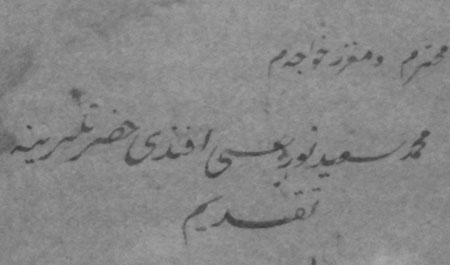 محترم و معزز خواجه‌م
محمد سعید نورسی افندی حضرتلرینه
تقدیم